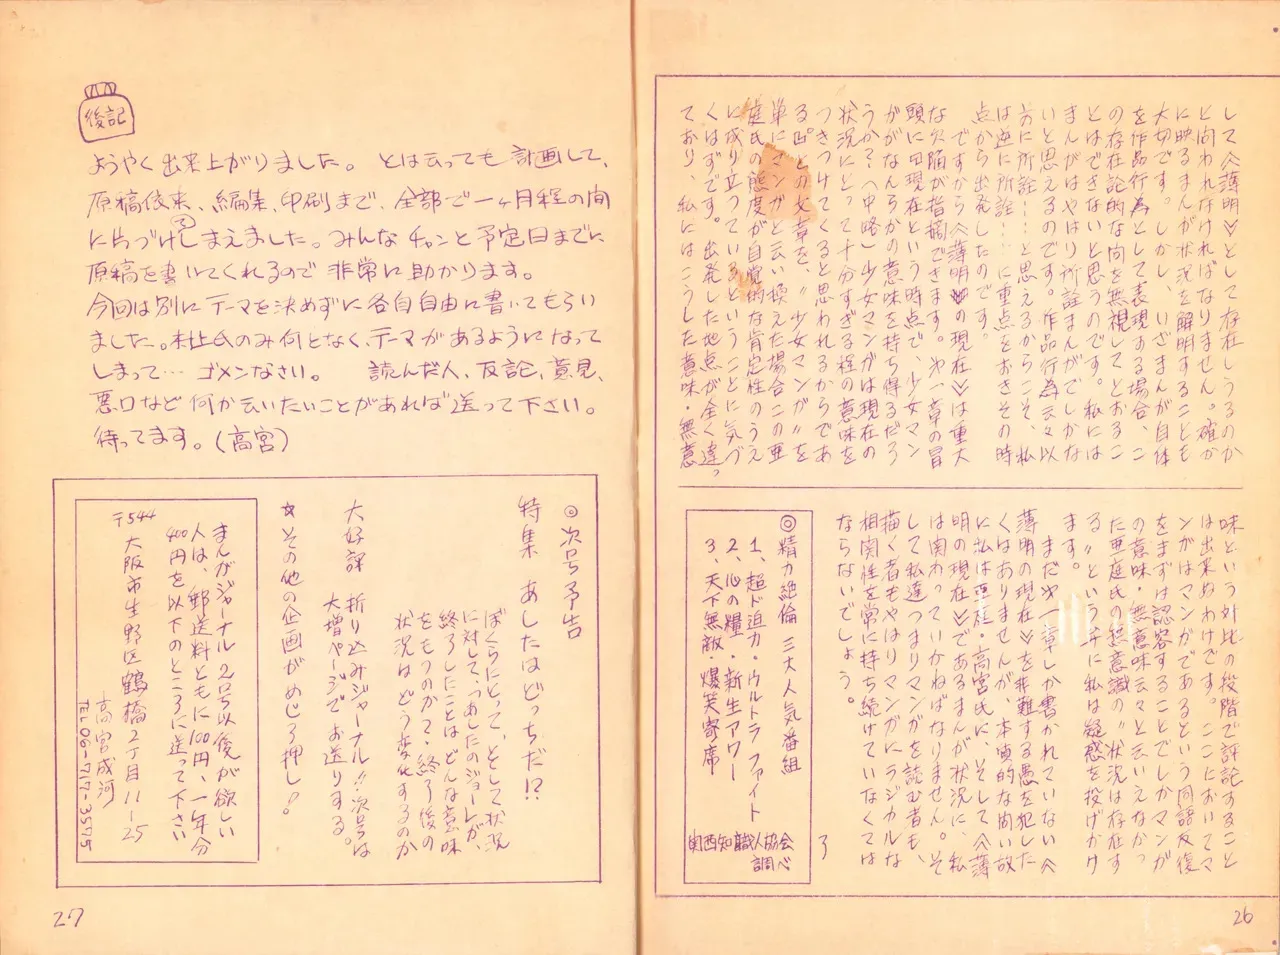 して〈薄明〉として存在しうるのか
と問われなければなりません。確か
に映るまんが状況を解明することも
大切です。しかし、いざまんが自体
を作品行為として表現する場合、こ
の存在論的な問を無視してとおるこ
とはできないと思うのです。私には
まんがはやはり所詮まんがでしかな
いと思えるのです。作品行為云々以
前に所詮……と思えるからこそ、私
は逆に所詮……に重点をおきその時
点から出発したのです。
ですから〈薄明の現在〉は重大
な欠陥が指摘できます。第一章の冒
頭に「現在という時点で、少女マン
ががなんらかの意味を持ち得るだろ
うか?(中略)少女マンガは現在の
状況にとって十分すぎる程の意味を
つきつけてくると思われるからであ
る」との文章を、〝少女マンガ〟を
単にマンガと云い換えた場合この亜
庭氏の態度が自覚的な肯定性のうえ
に成り立っているということに気づ
くはずです。出発した地点が全く違っ
ており、私にはこうした意味・無意
味という対比の段階で評記すること
は出来ぬわけです。ここにおいてマ
ンガはマンガであるという同語反復
をまずは認容することでしかマンガ
の意味・無意味云々と云えなかっ
た亜庭氏の超意識の〝状況は存在す
る〟という弁に私は疑惑を投げかけ
ます。
まだ第一章しか書かれていない〈
薄明の現在〉を非難する愚を犯した
くはありませんが、本質的な問い故
に私は亜庭・高宮氏に、そして〈薄
明の現在〉であるまんが状況に、私
は関わっていかねばなりません。そ
して私達つまりマンガを読む者も、
描く者もやはりマンガにラジカルな
相関性を常に持ち続けていなくては
ならないでしょう。
了
◎精力絶倫 三大人気番組
1、超ド迫力・ウルトラファイト
2、心の糧・新生アワー
3、天下無敵・爆笑寄席
関西知識人協会
調べ
26
後記
ようやく出来上がりました。とは云っても計画して、
原稿依来、編集、印刷まで、全部で一ヶ月程の間
に片づけてしまえました。みんなチャンと予定日までに
原稿を書いてくれるので非常に助かります。
今回は別にテーマを決めずに各自自由に書いてもらい
ました。杜氏のみ何となく、テーマがあるようになって
しまって…ゴメンなさい。 読んだ人、反論、意見、
悪口など何か云いたいことがあれば送って下さい。
待ってます。(高宮)
◎次号予告
特集 あしたはどっちだ!?
ぼくらにとって、として状況
に対して、〝あしたのジョー〟が、
終了したことは、どんな意味
をもつのか?・終了後の
状況はどう変化するのか
大好評 折り込みジャーナル!!次号は
大増ページでお送りする。
☆その他の企画がめじろ押し!
まんがジャーナル2号以後が欲しい
人は、郵送料ともに100円、一年分
400円を以下のところに送って下さい
〒544
大阪市生野区鶴橋2丁目11-25
高宮成河
TEL06-717-3575
27